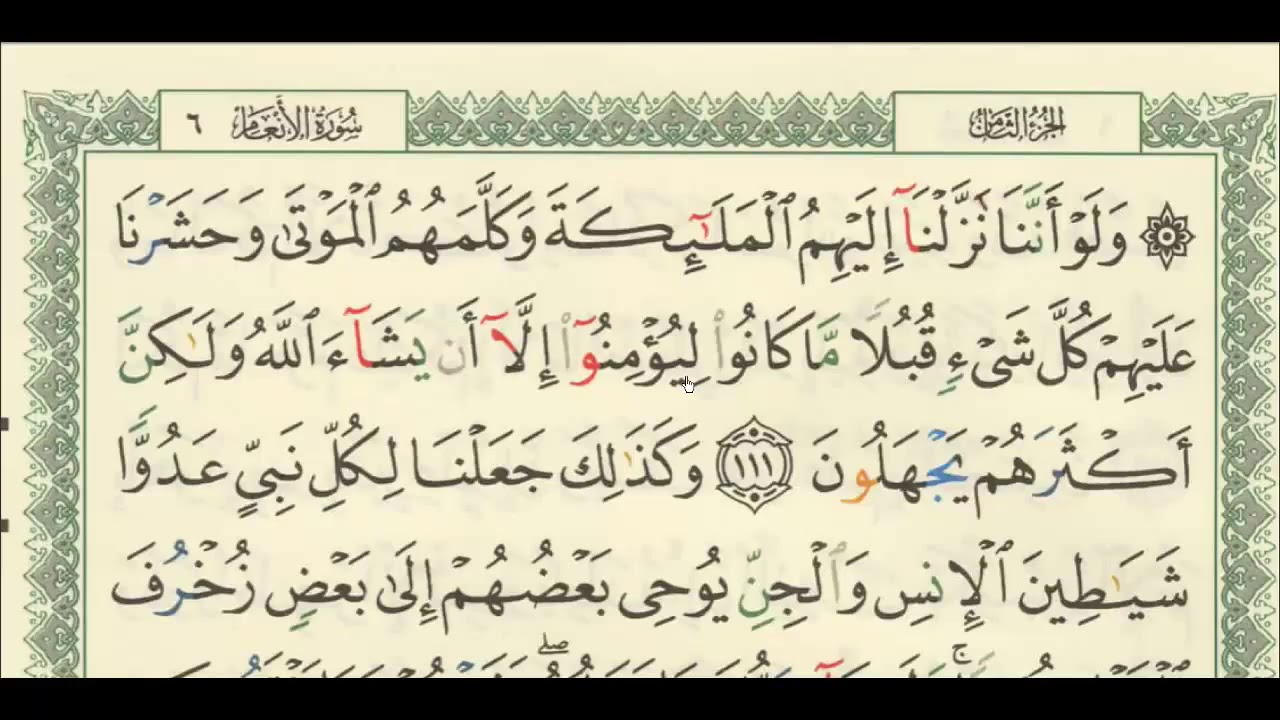 الجزء الثامن
سورة الأنعام ٦
۞ وَلَوْ أَنَّنَا نَزَّلْنَآ إِلَيْهِمُ ٱلْمَلَٰٓئِكَةَ وَكَلَّمَهُمُ ٱلْمَوْتَىٰ وَحَشَرْنَا
عَلَيْهِمْ كُلَّ شَىْءٍ قُبُلًا مَّا كَانُوا۟ لِيُؤْمِنُوٓا۟ إِلَّآ أَن يَشَآءَ ٱللَّهُ وَلَٰكِنَّ
أَكْثَرَهُمْ يَجْهَلُونَ ١١١ وَكَذَٰلِكَ جَعَلْنَا لِكُلِّ نَبِىٍّ عَدُوًّا
شَيَٰطِينَ ٱلْإِنسِ وَٱلْجِنِّ يُوحِى بَعْضُهُمْ إِلَىٰ بَعْضٍ زُخْرُفَ